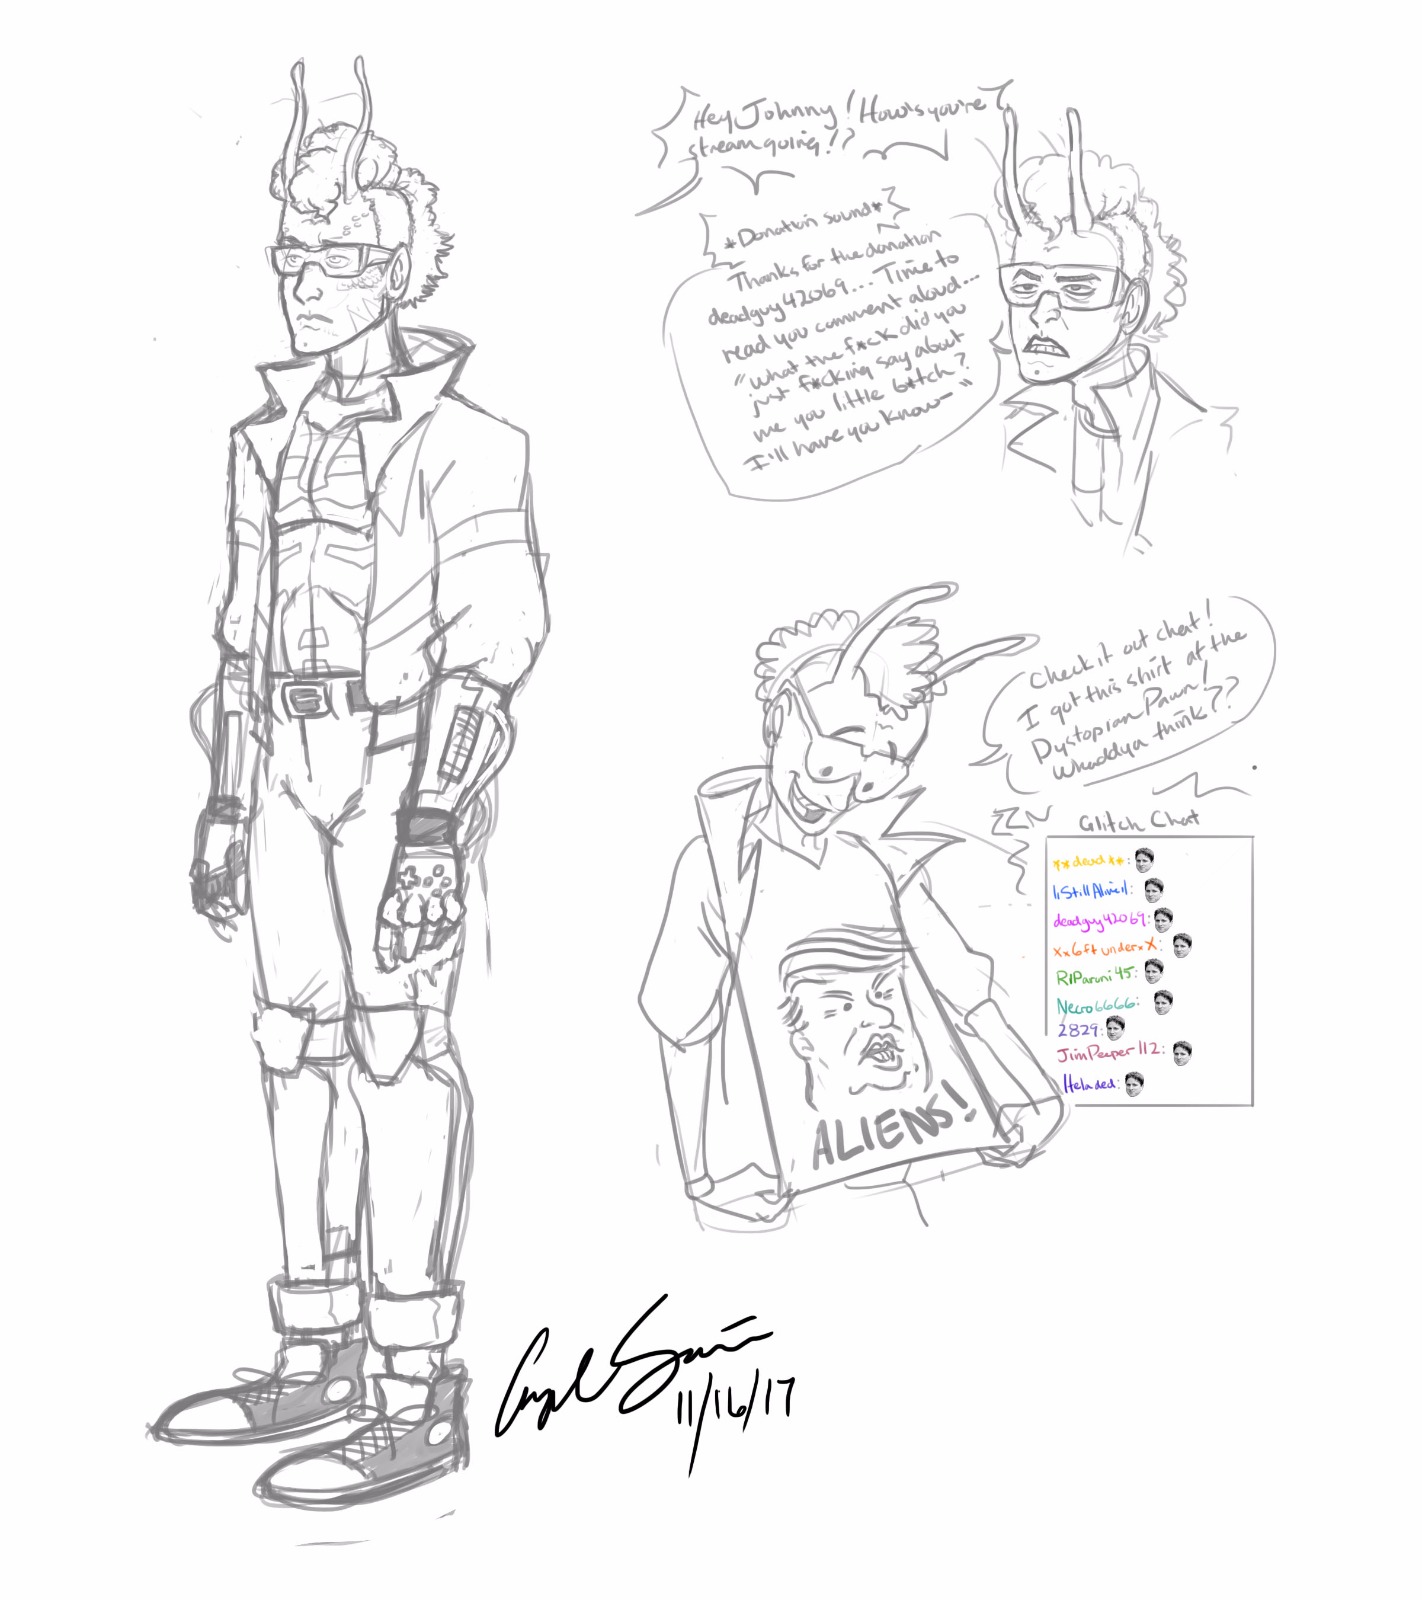 Hey Johnny! How's you're
stream going!?
*Donation sound*
Thanks for the donation
deadguy42069... Time to
read you comment aloud...
"What the f*ck did you
just f*cking say about
me you little b*tch?
I'll have you know-"
Check it out chat!
I got this shirt at the
Dystopian Pawn!
Whaddya think??
Glitch Chat
**dead**:
deadguy42069:
xx6ftunderxX:
Necro6666:
2829:
JimPeeper112:
ALIENS!
11/16/17